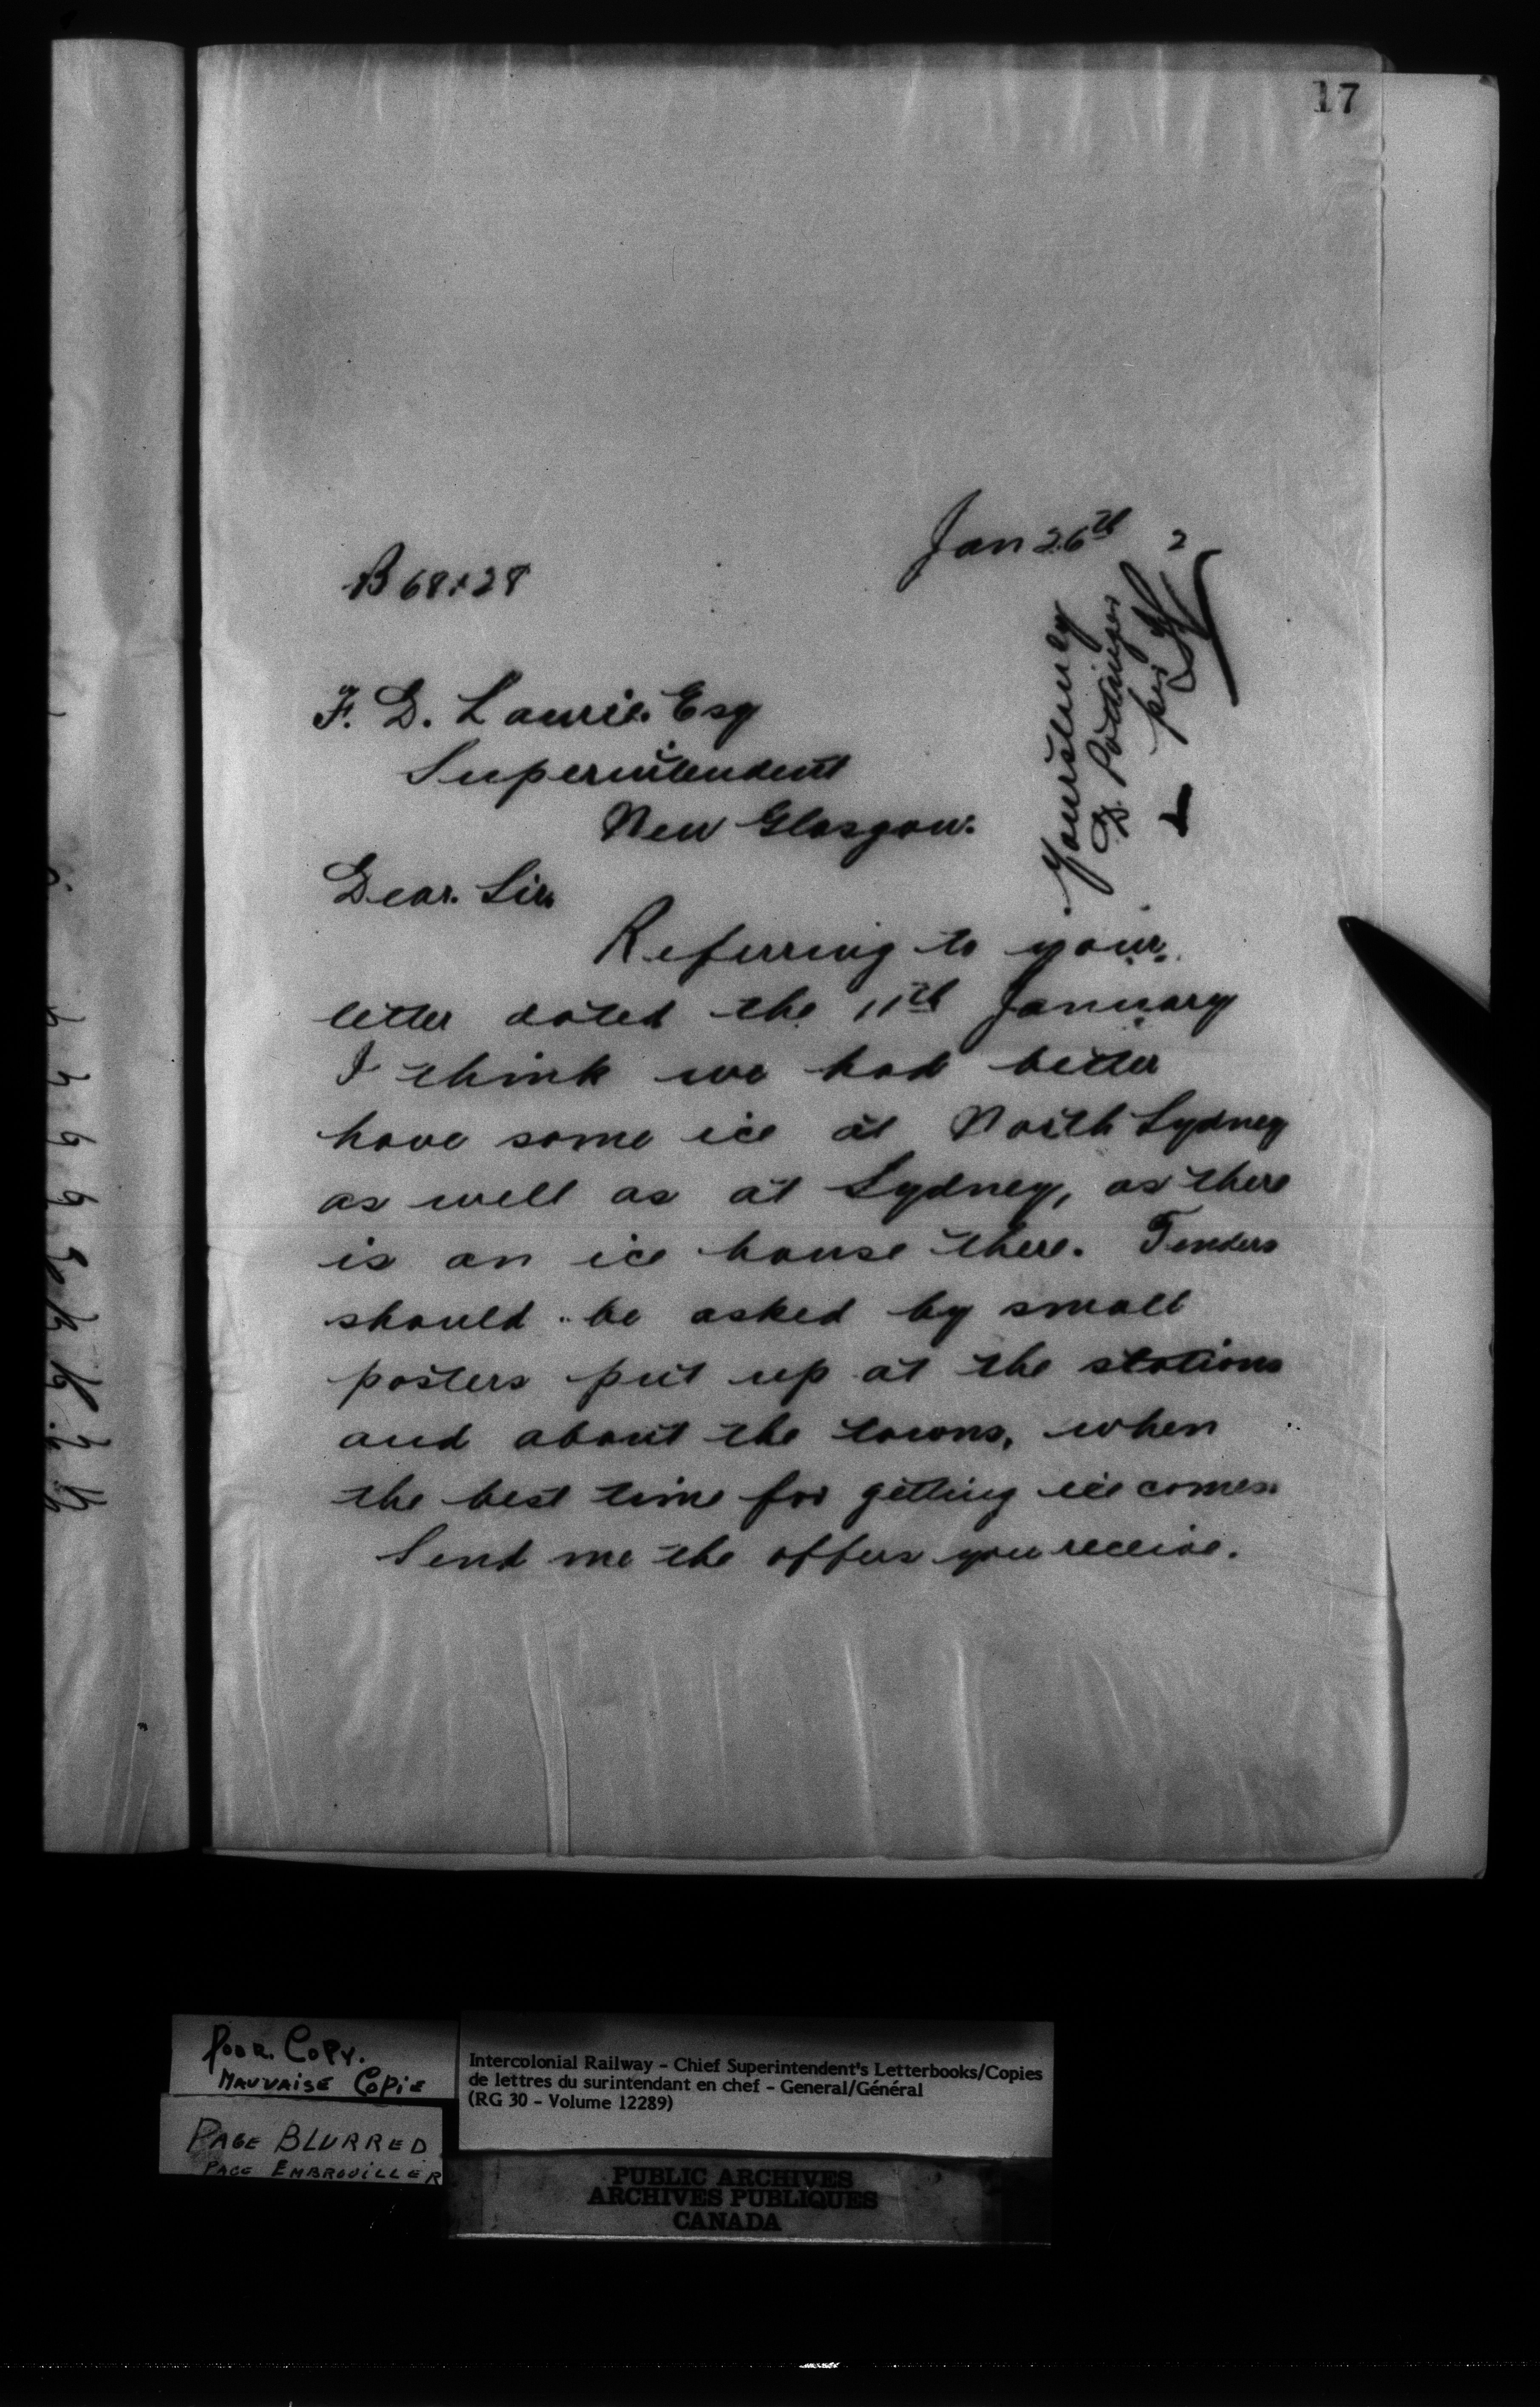 17
Jan 26th 2
B 68128
F. D. Laurie. Esq
Superintendent
New Glasgow.
Dear. Sir.
Referring to your
letter dated the 11th January
I think we had better
have some ice at North Sydney
as well as at Sydney, as there
is an ice house there. Tenders
should be asked by small
posters put up at the stations
and about the towns, when
the best time for getting ice comes.
Send me the offers you receive.
Yours truly
D. Pottinger
per
Poor. Copy.
Mauvaise Copie
Page Blurred
Page Embrouiller
Intercolonial Railway - Chief Superintendent's Letterbooks/Copies
de lettres du surintendant en chef - General/Général
(RG 30 - Volume 12289)
PUBLIC ARCHIVES
ARCHIVES PUBLIQUES
CANADA